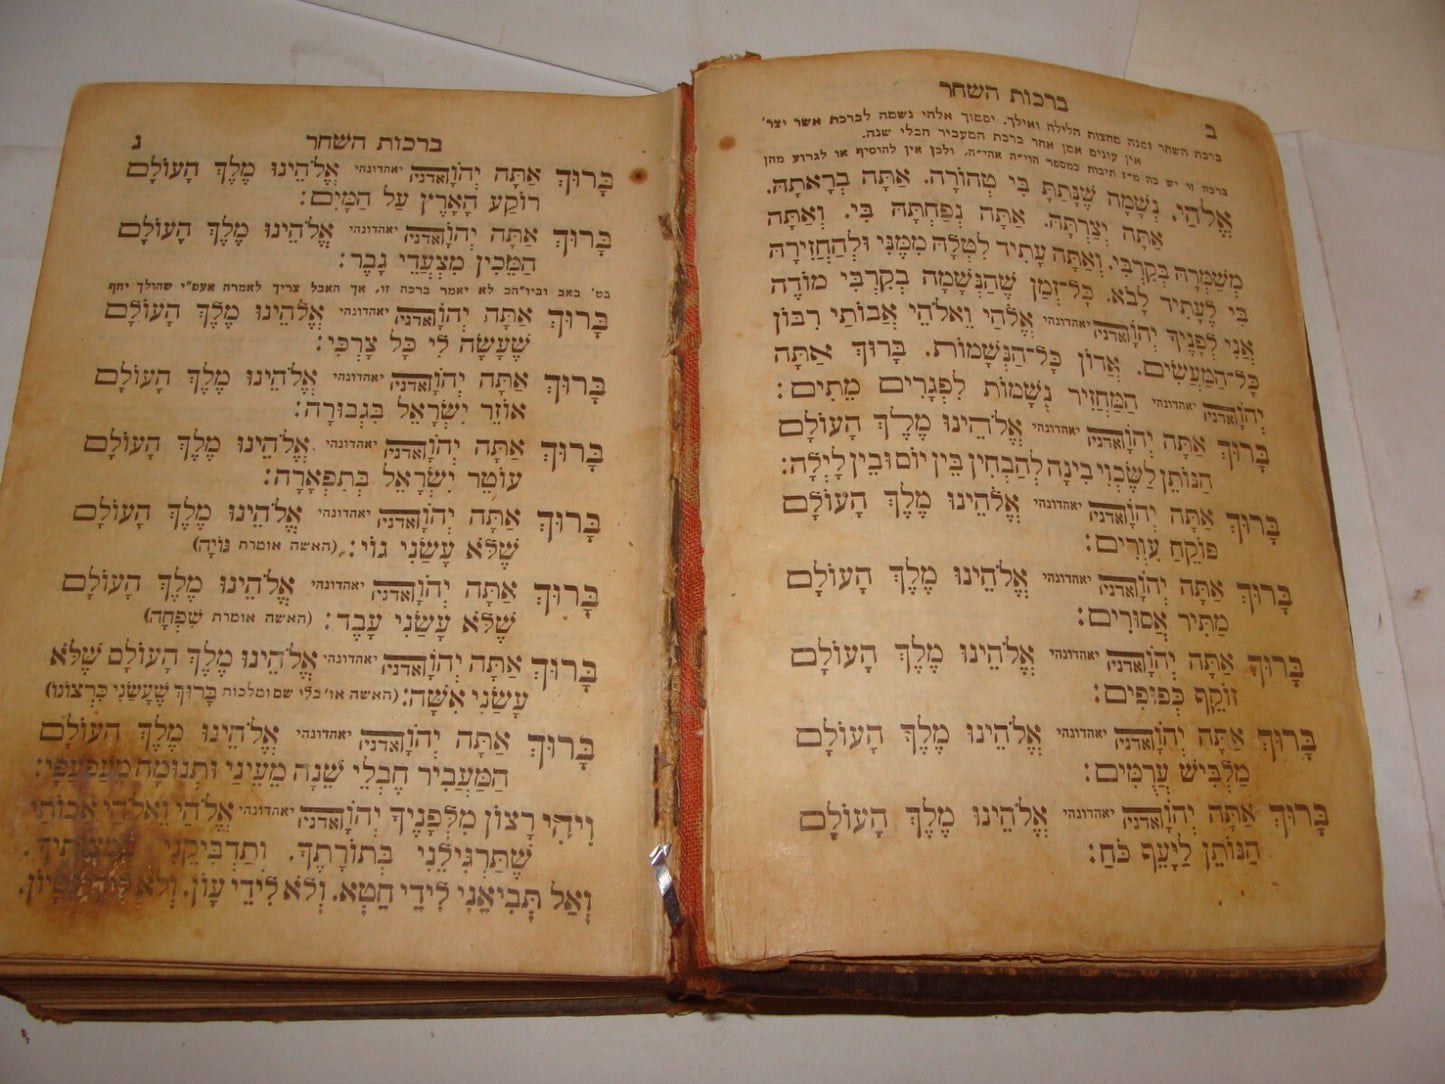 ב
ברכות השחר
ברכת השחר זמנה מחצות הלילה ואילך. יסמוך אלהי נשמה לברכת אשר יצר'
אין עונים אמן אחר ברכת המעביר חבלי שנה.
ברכה זו יש בה מ"ז תיבות כמספר הוי"ה אהי"ה, ולכן אין להוסיף או לגרוע מהן
אֱלֹהַי. נְשָׁמָה שֶׁנָּתַתָּ בִּי טְהוֹרָה. אַתָּה בְרָאתָהּ.
אַתָּה יְצַרְתָּהּ. אַתָּה נְפַחְתָּהּ בִּי. וְאַתָּה
מְשַׁמְּרָהּ בְּקִרְבִּי. וְאַתָּה עָתִיד לִטְּלָהּ מִמֶּנִּי וּלְהַחֲזִירָהּ
בִּי לֶעָתִיד לָבֹא. כָּל־זְמַן שֶׁהַנְּשָׁמָה בְקִרְבִּי מוֹדֶה
אֲנִי לְפָנֶיךָ יְהֹוָה יאהדונהי אֱלֹהַי וֵאלֹהֵי אֲבוֹתַי רִבּוֹן
כָּל־הַמַּעֲשִׂים. אֲדוֹן כָּל־הַנְּשָׁמוֹת. בָּרוּךְ אַתָּה
יְהֹוָה אדני יאהדונהי הַמַּחֲזִיר נְשָׁמוֹת לִפְגָרִים מֵתִים:
בָּרוּךְ אַתָּה יְהֹוָה אדני יאהדונהי אֱלֹהֵינוּ מֶלֶךְ הָעוֹלָם
הַנּוֹתֵן לַשֶּׂכְוִי בִינָה לְהַבְחִין בֵּין יוֹם וּבֵין לָיְלָה:
בָּרוּךְ אַתָּה יְהֹוָה אדני יאהדונהי אֱלֹהֵינוּ מֶלֶךְ הָעוֹלָם
פּוֹקֵחַ עִוְרִים:
בָּרוּךְ אַתָּה יְהֹוָה אדני יאהדונהי אֱלֹהֵינוּ מֶלֶךְ הָעוֹלָם
מַתִּיר אֲסוּרִים:
בָּרוּךְ אַתָּה יְהֹוָה אדני יאהדונהי אֱלֹהֵינוּ מֶלֶךְ הָעוֹלָם
זוֹקֵף כְּפוּפִים:
בָּרוּךְ אַתָּה יְהֹוָה אדני יאהדונהי אֱלֹהֵינוּ מֶלֶךְ הָעוֹלָם
מַלְבִּישׁ עֲרֻמִּים:
בָּרוּךְ אַתָּה יְהֹוָה אדני יאהדונהי אֱלֹהֵינוּ מֶלֶךְ הָעוֹלָם
הַנּוֹתֵן לַיָּעֵף כֹּחַ:
ברכות השחר
ג
בָּרוּךְ אַתָּה יְהֹוָה אדניה יאהדונהי אֱלֹהֵינוּ מֶלֶךְ הָעוֹלָם
רוֹקַע הָאָרֶץ עַל הַמָּיִם:
בָּרוּךְ אַתָּה יְהֹוָה אדני יאהדונהי אֱלֹהֵינוּ מֶלֶךְ הָעוֹלָם
הַמֵּכִין מִצְעֲדֵי גָבֶר:
בט' באב וביו"הכ לא יאמר ברכה זו, אך האבל צריך לאמרה אעפ"י שהולך יחף
בָּרוּךְ אַתָּה יְהֹוָה אדני יאהדונהי אֱלֹהֵינוּ מֶלֶךְ הָעוֹלָם
שֶׁעָשָׂה לִי כָּל צָרְכִּי:
בָּרוּךְ אַתָּה יְהֹוָה אדני יאהדונהי אֱלֹהֵינוּ מֶלֶךְ הָעוֹלָם
אוֹזֵר יִשְׂרָאֵל בִּגְבוּרָה:
בָּרוּךְ אַתָּה יְהֹוָה אדני יאהדונהי אֱלֹהֵינוּ מֶלֶךְ הָעוֹלָם
עוֹטֵר יִשְׂרָאֵל בְּתִפְאָרָה:
בָּרוּךְ אַתָּה יְהֹוָה אדני יאהדונהי אֱלֹהֵינוּ מֶלֶךְ הָעוֹלָם
שֶׁלֹּא עָשַׂנִי גוֹי: (האשה אומרת גּוֹיָה)
בָּרוּךְ אַתָּה יְהֹוָה אדני יאהדונהי אֱלֹהֵינוּ מֶלֶךְ הָעוֹלָם
שֶׁלֹּא עָשַׂנִי עָבֶד: (האשה אומרת שִׁפְחָה)
בָּרוּךְ אַתָּה יְהֹוָה אדני יאהדונהי אֱלֹהֵינוּ מֶלֶךְ הָעוֹלָם שֶׁלֹּא
עָשַׂנִי אִשָּׁה: (האשה או' בלי שם ומלכות בָּרוּךְ שֶׁעָשַׂנִי כִּרְצוֹנוֹ)
בָּרוּךְ אַתָּה יְהֹוָה אדני יאהדונהי אֱלֹהֵינוּ מֶלֶךְ הָעוֹלָם
הַמַּעֲבִיר חֶבְלֵי שֵׁנָה מֵעֵינַי וּתְנוּמָה מֵעַפְעַפָּי:
וִיהִי רָצוֹן מִלְּפָנֶיךָ יְהֹוָה אדני יאהדונהי אֱלֹהַי וֵאלֹהֵי אֲבוֹתַי
שֶׁתַּרְגִּילֵנִי בְּתוֹרָתֶךָ. וְתַדְבִּיקֵנִי בְּמִצְוֹתֶיךָ.
וְאַל תְּבִיאֵנִי לִידֵי חֵטְא. וְלֹא לִידֵי עָוֹן. וְלֹא לִידֵי נִסָּיוֹן.